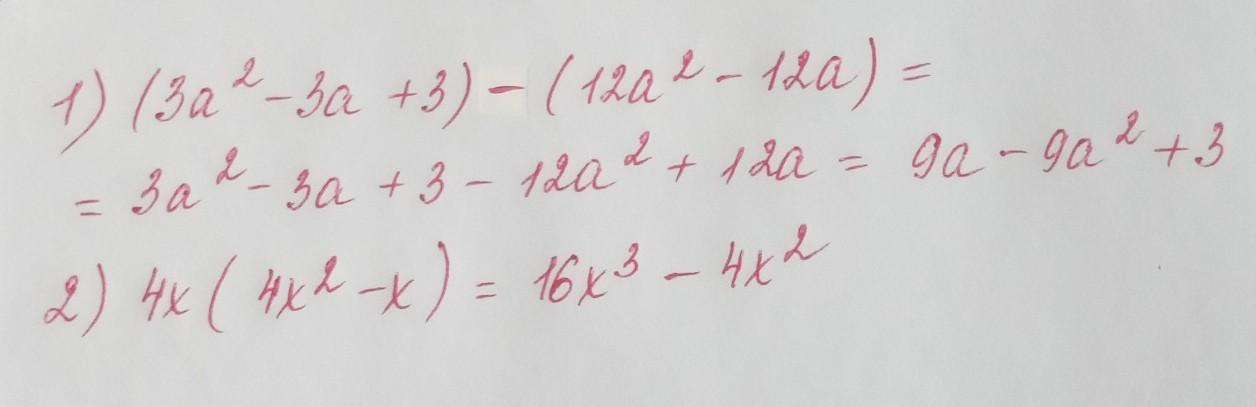 1) (3a² - 3a + 3) - (12a² - 12a) =
= 3a² - 3a + 3 - 12a² + 12a = 9a - 9a² + 3
2) 4x ( 4x² - x ) = 16x³ - 4x²